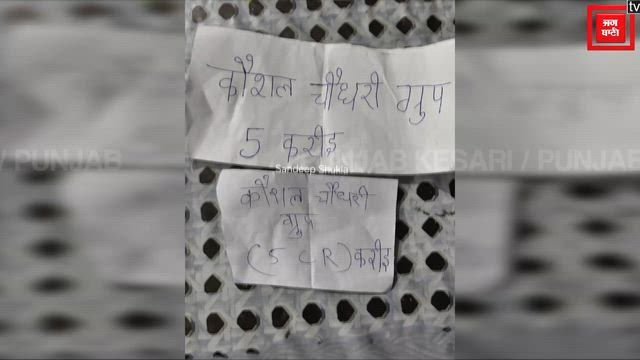 tv
ਜਗ
ਬਾਣੀ
कौशल चौधरी ग्रुप
5 करोड़
Sandeep Shukla
/ PUNJAB
PUNJAB KESARI / PUNJAB
कौशल चौधरी
ग्रुप
(5 CR) करोड़